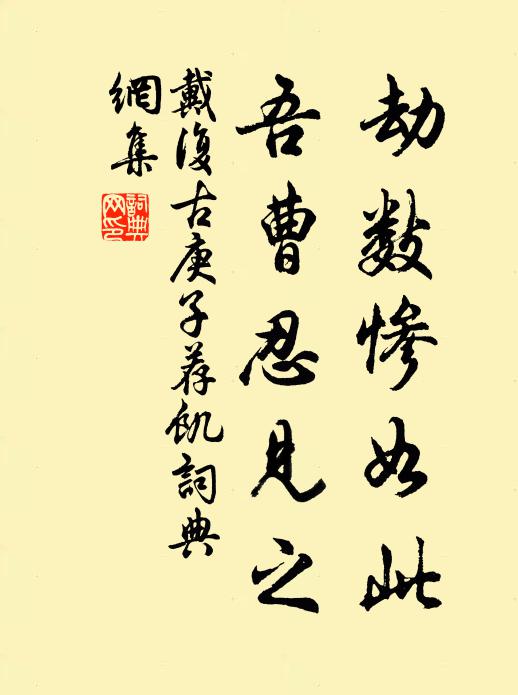 劫數慘如此
吾曹忍見之
戴復古庚子荐飢詞典
網集
詞典
网印